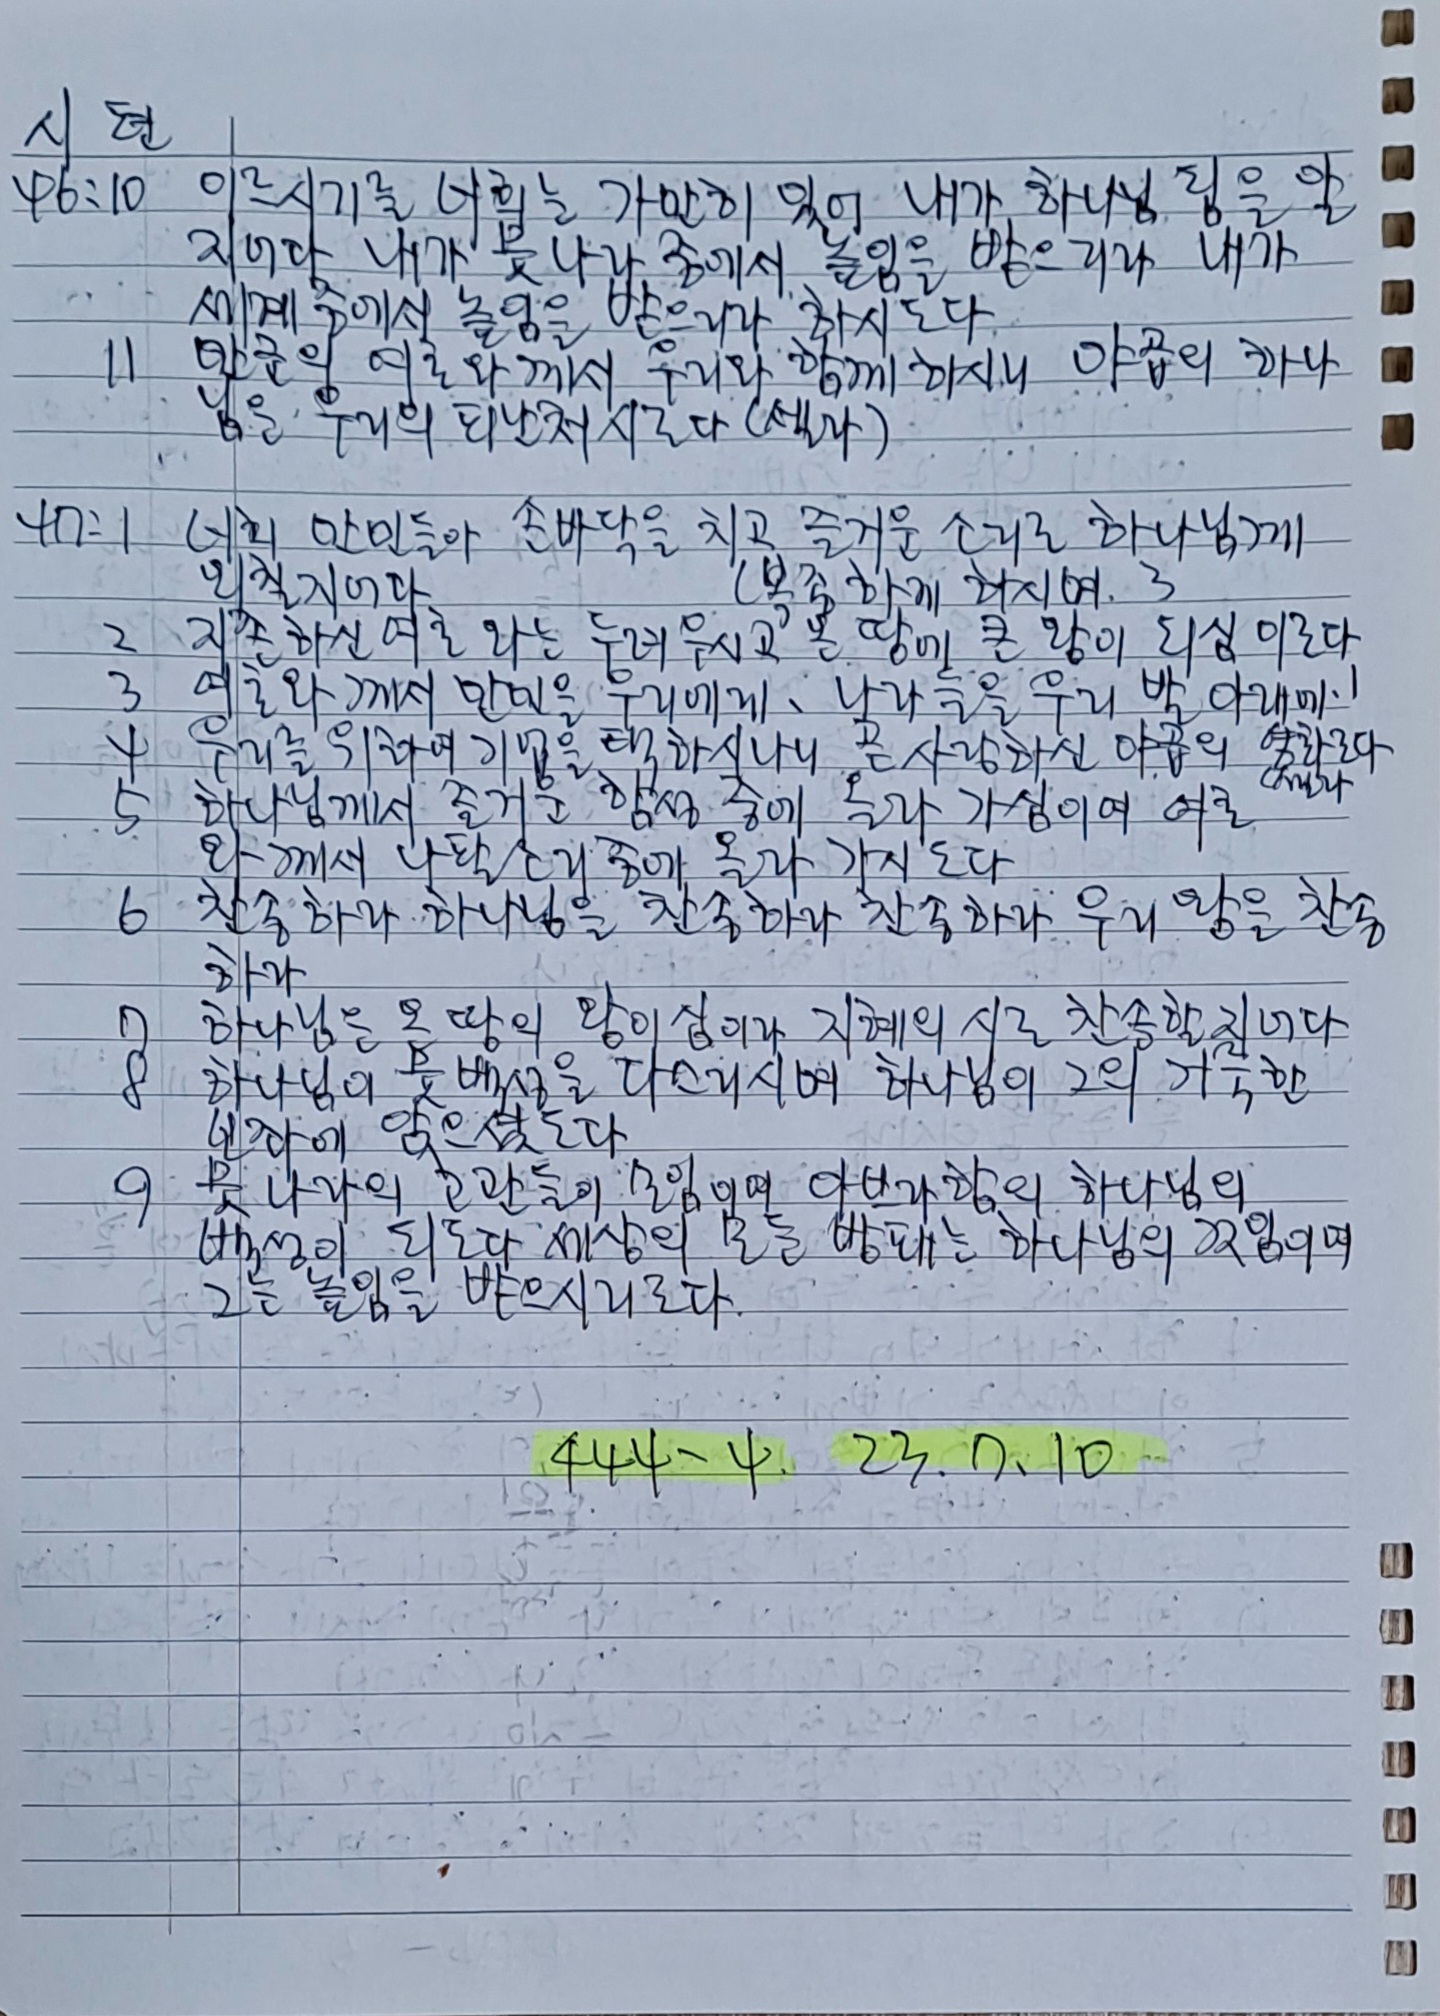 시 편
46:10 이르시기를 너희는 가만히 있어 내가 하나님 됨을 알
지어다 내가 뭇 나라 중에서 높임을 받으리라 내가
세계 중에서 높임을 받으리라 하시도다
11 만군의 여호와께서 우리와 함께 하시니 야곱의 하나
님은 우리의 피난처시로다 (셀라)
47:1 너희 만민들아 손바닥을 치고 즐거운 소리로 하나님께
외칠지어다 (복종하게 하시며. 3
2 지존하신 여호와는 두려우시고 온 땅에 큰 왕이 되심이로다
3 여호와께서 만민을 우리에게, 나라들을 우리 발 아래에
4 우리를 위하여 기업을 택하시나니 곧 사랑하신 야곱의 영화로다
(셀라
5 하나님께서 즐거운 함성 중에 올라 가심이여 여호
와께서 나팔 소리 중에 올라 가시도다
6 찬송하라 하나님을 찬송하라 찬송하라 우리 왕을 찬송
하라
7 하나님은 온 땅의 왕이심이라 지혜의 시로 찬송할지어다
8 하나님이 뭇 백성을 다스리시며 하나님이 그의 거룩한
보좌에 앉으셨도다
9 뭇 나라의 고관들이 모임이여 아브라함의 하나님의
백성이 되도다 세상의 모든 방패는 하나님의 것임이여
그는 높임을 받으시리로다.
444-4. 23. 7. 10